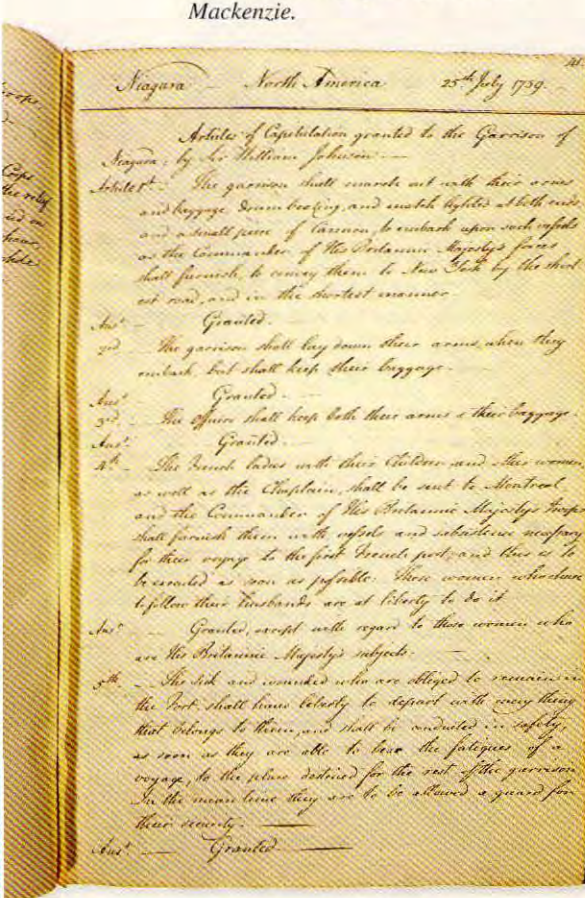 Mackenzie.
41.
Niagara North America 25th July 1759.
Articles of Capitulation granted to the Garrison of
Niagara; by Sir William Johnson.
Article 1st. The garrison shall march out with their arms
and baggage, drum beating, and match lighted at both ends,
and a small piece of Cannon, to embark upon such vessels
as the Commander of His Britannic Majesty's forces
shall furnish, to convey them to New York by the short
est road, and in the shortest manner.
Ansr. Granted.
2nd The garrison shall lay down their arms, when they
embark, but shall keep their baggage.
Ansr. Granted.
3rd. The officers shall keep both their arms & their baggage.
Ansr. Granted.
4th. The French ladies with their Children, and other women
as well as the Chaplain, shall be sent to Montreal
and the Commander of His Britannic Majesty's troops
shall furnish them with vessels and subsistence necessary
for their voyage to the first French port, and this is to
be executed as soon as possible. Those women who chuse
to follow their husbands are at liberty to do it
Ansr. Granted, except with regard to those women who
are His Britannic Majesty's subjects.
5th. The sick and wounded who are obliged to remain in
the Fort, shall have liberty to depart with every thing
that belongs to them, and shall be conducted in safety,
as soon as they are able to bear the fatigues of a
voyage, to the place destined for the rest of the garrison
In the mean time they are to be allowed a guard for
their security.
Ansr. Granted